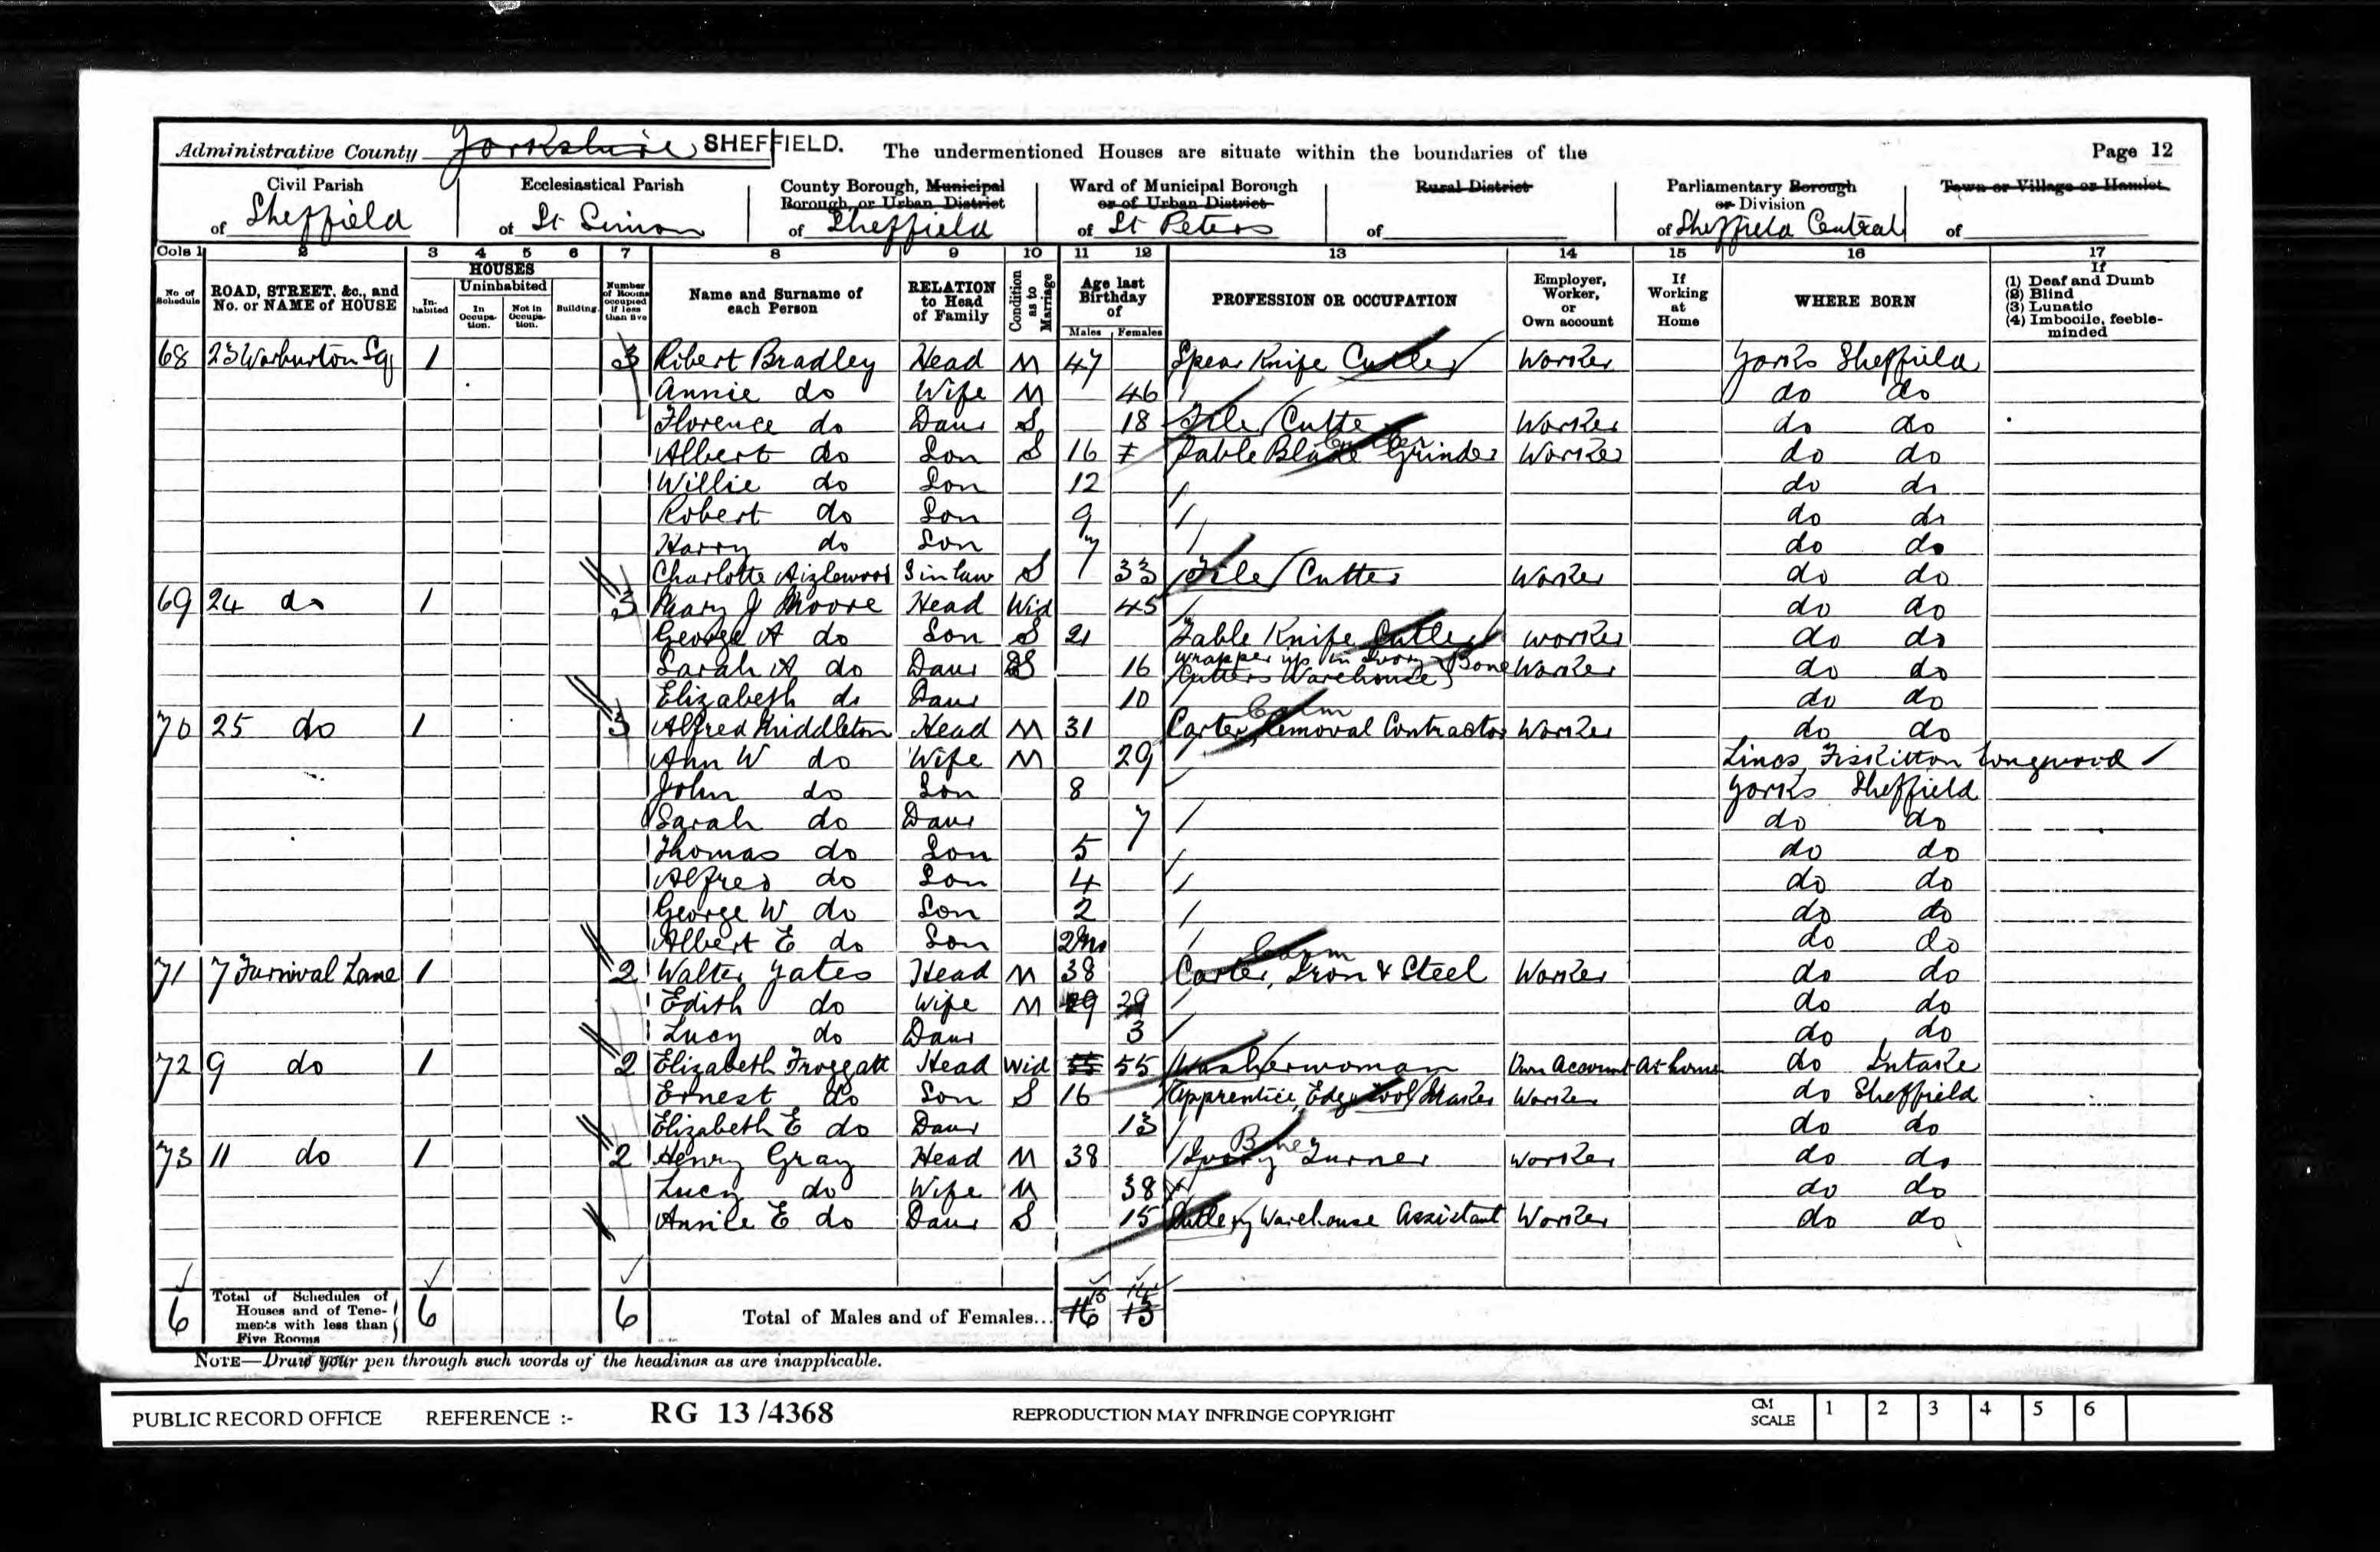 Administrative County Yorkshire SHEFFIELD. The undermentioned Houses are situate within the boundaries of the Page 12
Civil Parish of Sheffield
Ecclesiastical Parish of St Simon
County Borough, Municipal Borough, or Urban District of Sheffield
Ward of Municipal Borough or of Urban District of St Peters
Rural District of
Parliamentary Borough or Division of Sheffield Central
Town or Village or Hamlet of
Cols 1 2 3 4 5 6 7 8 9 10 11 12 13 14 15 16 17
No. of Schedule
ROAD, STREET, &c., and No. or NAME of HOUSE
HOUSES
In-habited
Uninhabited
In Occupa-tion.
Not in Occupa-tion.
Building.
Number of Rooms occupied if less than five
Name and Surname of each Person
RELATION to Head of Family
Condition as to Marriage
Age last Birthday of
Males Females
PROFESSION OR OCCUPATION
Employer, Worker, or Own account
If Working at Home
WHERE BORN
If
(1) Deaf and Dumb
(2) Blind
(3) Lunatic
(4) Imbecile, feeble-minded
68 23 Warburton Sq 1 3 Robert Bradley Head M 47 Spear Knife Cutler Worker Yorks Sheffield
Annie do Wife M 46 do do
Florence do Daur S 18 File Cutter Worker do do
Albert do Son S 16 Table Blade Grinder Worker do do
Willie do Son 12 do do
Robert do Son 9 do do
Harry do Son 7 do do
Charlotte Aizlewood S in law S 33 File Cutter Worker do do
69 24 do 1 3 Mary J Moore Head Wid 45 do do
George A do Son S 21 Table Knife Cutler Worker do do
Sarah A do Daur S 16 Wrapper up in Ivory & Bone Cutters Warehouse Worker do do
Elizabeth do Daur 10 do do
70 25 do 1 3 Alfred Middleton Head M 31 Carter, Removal Contractor Worker do do
Ann W do Wife M 29 Lincs, Fiskitton Longwood
John do Son 8 Yorks Sheffield
Sarah do Daur 7 do do
Thomas do Son 5 do do
Alfred do Son 4 do do
George W do Son 2 do do
Albert E do Son 2 Mo do do
71 7 Furnival Lane 1 2 Walter Yates Head M 38 Carter, Iron & Steel Worker do do
Edith do Wife M 29 29 do do
Lucy do Daur 3 do do
72 9 do 1 2 Elizabeth Froggatt Head Wid 55 55 Washerwoman Own Account At home do Intake
Ernest do Son S 16 Apprentice, Edge Tool Maker Worker do Sheffield
Elizabeth E do Daur 13 do do
73 11 do 1 2 Henry Gray Head M 38 Ivory Bone Turner Worker do do
Lucy do Wife M 38 do do
Annie E do Daur S 15 Cutlery Warehouse Assistant Worker do do
6 Total of Schedules of Houses and of Tene-ments with less than Five Rooms 6 6 Total of Males and of Females... 16 15 13 14
NOTE—Draw your pen through such words of the headings as are inapplicable.
PUBLIC RECORD OFFICE REFERENCE :- RG 13/4368 REPRODUCTION MAY INFRINGE COPYRIGHT CM SCALE 1 2 3 4 5 6